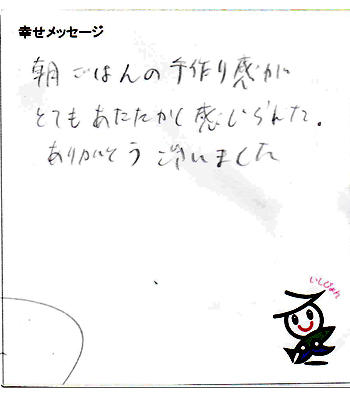 幸せメッセージ
朝ごはんの手作り感が
とてもあたたかく感じられた。
ありがとうございました